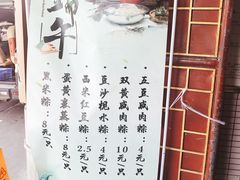 端午
五豆咸肉粽：8元/只
双黄咸肉粽：10元/只
豆沙枧水粽：4元/只
西米红豆粽：2.5元/只
蛋黄裹蒸粽：8元/只
黑米粽：8元/只